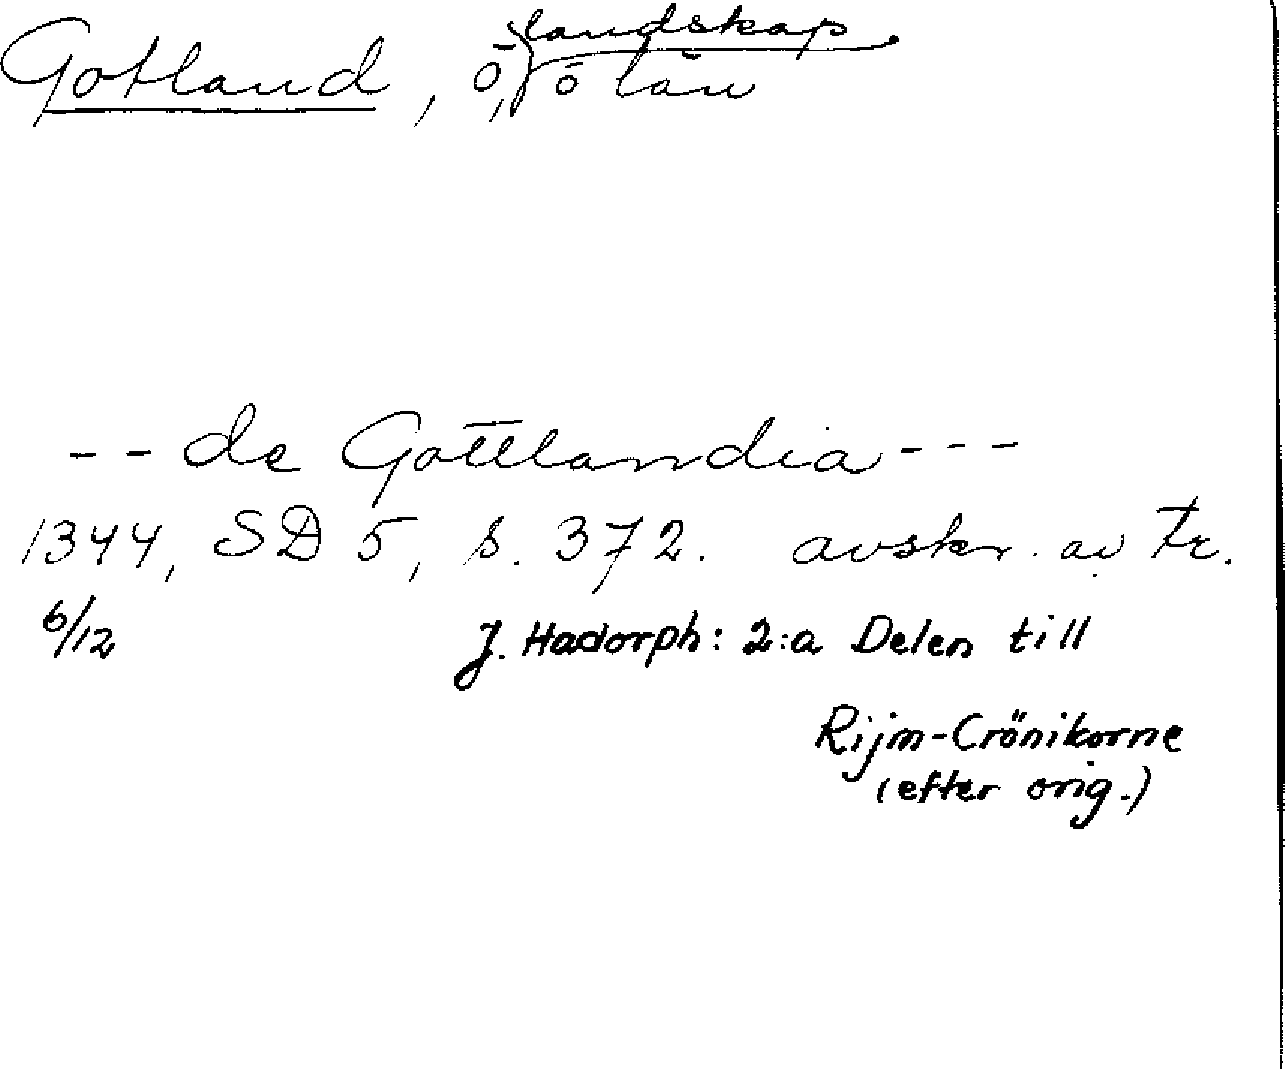 Gotland, ö, landskap o län
-- de Gottlandia ---
1344, SD 5, s. 372. avskr. av tr.
6/12 J. Hadorph: 2:a Delen till
Rijm-Crönikorne
(efter orig.)